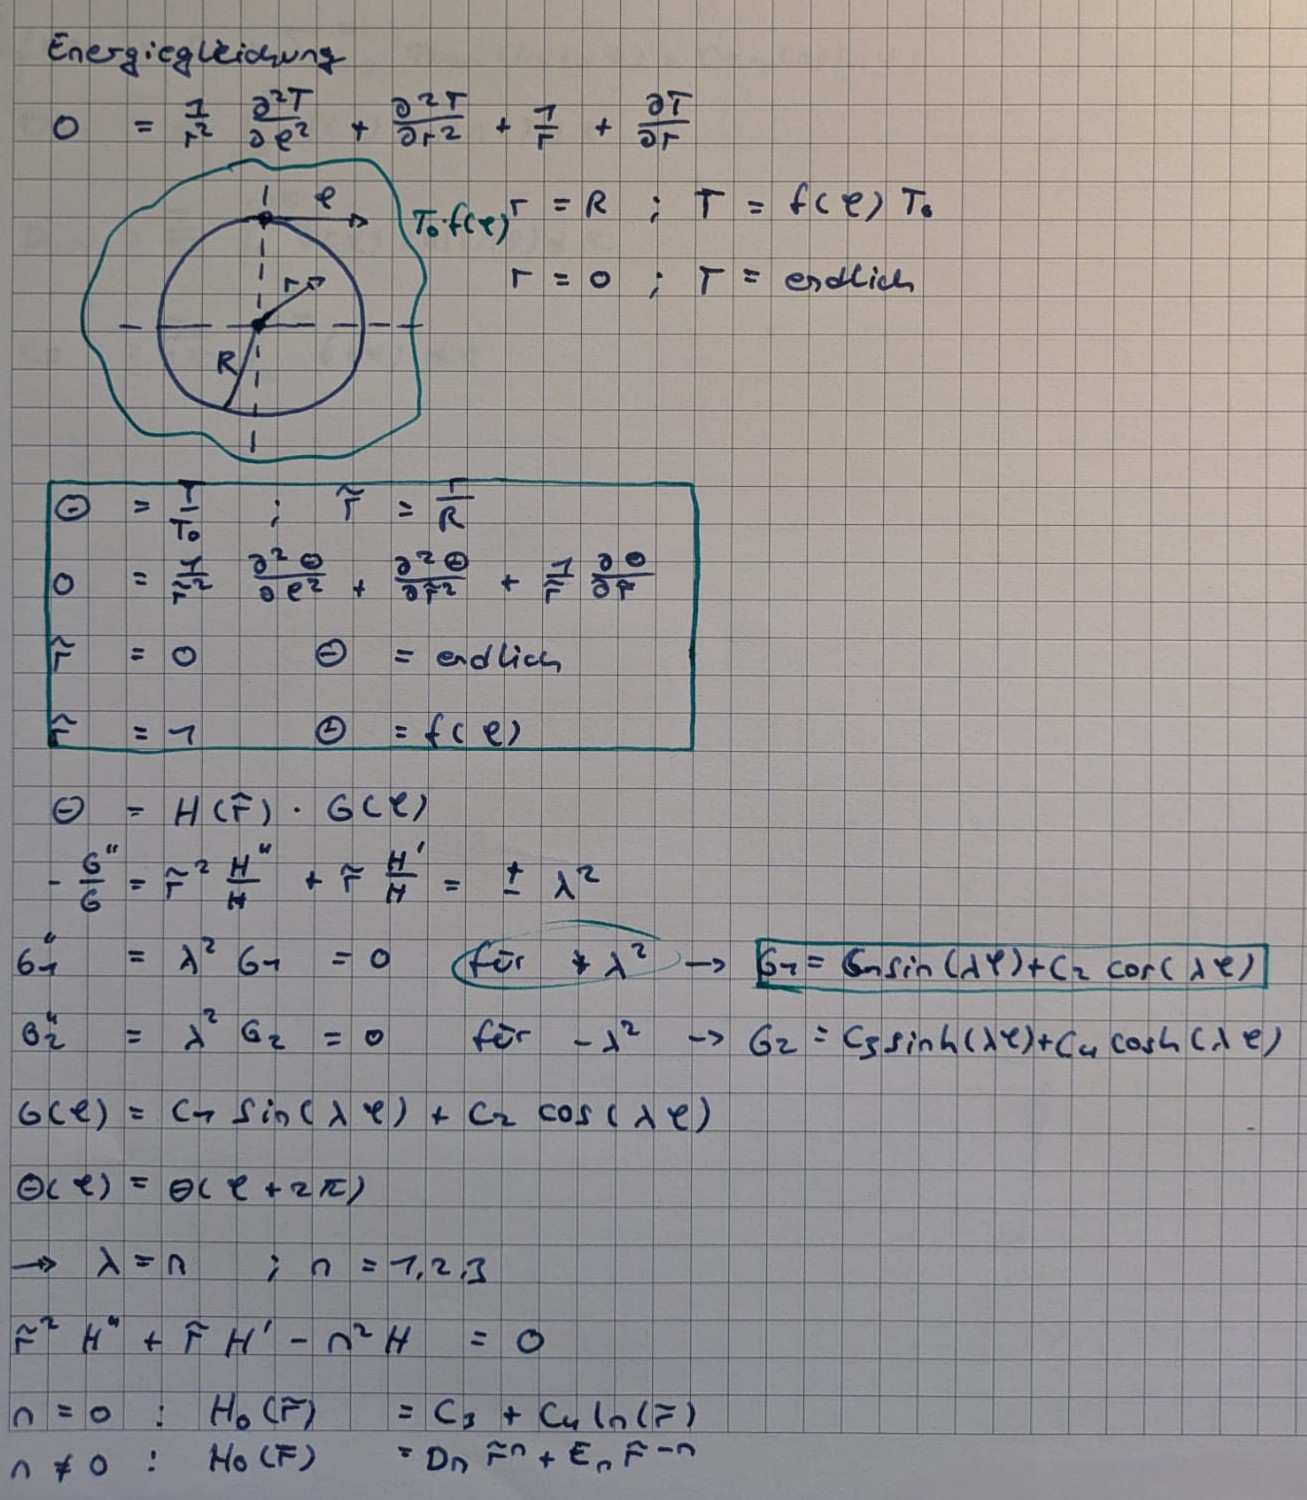 Energiegleichung
0 = 1/r² ∂²T/∂φ² + ∂²T/∂r² + 1/r + ∂T/∂r
φ T₀·f(φ) r = R ; T = f(φ) T₀
r r = 0 ; T = endlich
R
Θ = T/T₀ ; r̃ = r/R
0 = 1/r̃² ∂²Θ/∂φ² + ∂²Θ/∂r̃² + 1/r̃ ∂Θ/∂r̃
r̃ = 0 Θ = endlich
r̃ = 1 Θ = f(φ)
Θ = H(r̃) · G(φ)
- G''/G = r̃² H''/H + r̃ H'/H = ± λ²
G₁'' = λ² G₁ = 0 für + λ² → G₁ = C₁ sin(λφ) + C₂ cos(λφ)
G₂'' = λ² G₂ = 0 für - λ² → G₂ = C₃ sinh(λφ) + C₄ cosh(λφ)
G(φ) = C₁ sin(λφ) + C₂ cos(λφ)
Θ(φ) = Θ(φ + 2π)
→ λ = n ; n = 1,2,3
r̃² H'' + r̃ H' - n² H = 0
n = 0 : H₀(r̃) = C₃ + C₄ ln(r̃)
n ≠ 0 : H₀(r̃) = Dₙ r̃ⁿ + Eₙ r̃⁻ⁿ